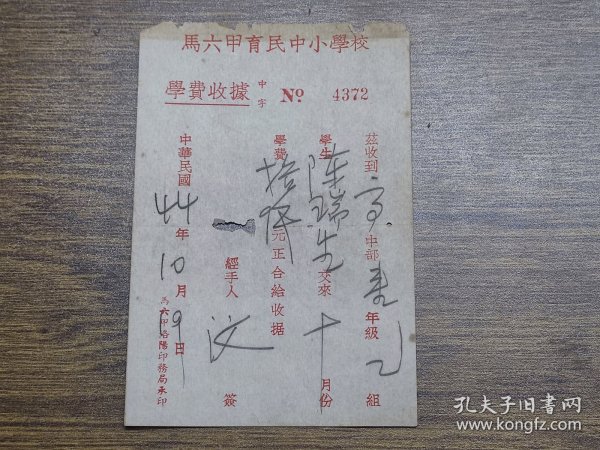 馬六甲育民中小學校
學費收據 中字 № 4372
茲收到高中部 年級乙組
學生陳瑞生交來十月份
學費拾 元正合給收据
經手人 簽
中華民國44年10月19日
馬六甲洛陽印務局承印
孔夫子旧书网
www.kongfz.com